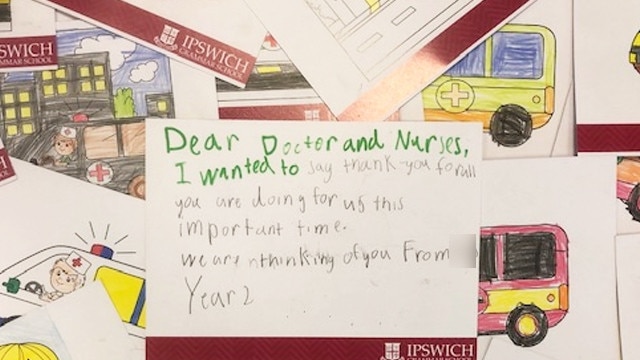 ISWICH
IPSWICH
GRAMMAR SCHOOL
Dear Doctor and Nurses,
I wanted to say thank-you for all
you are doing for us this
important time.
we are nthinking of you From
Year 2
IPSWICH
GRAMMAR SCHOOL